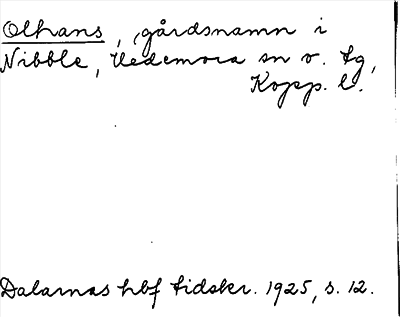 Olhans, gårdsnamn i
Nibble, Hedemora sn o. tg,
Kopp. l.
Dalarnas hbf tidskr. 1925, s. 12.